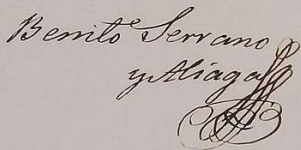 Benito Serrano
y Aliaga